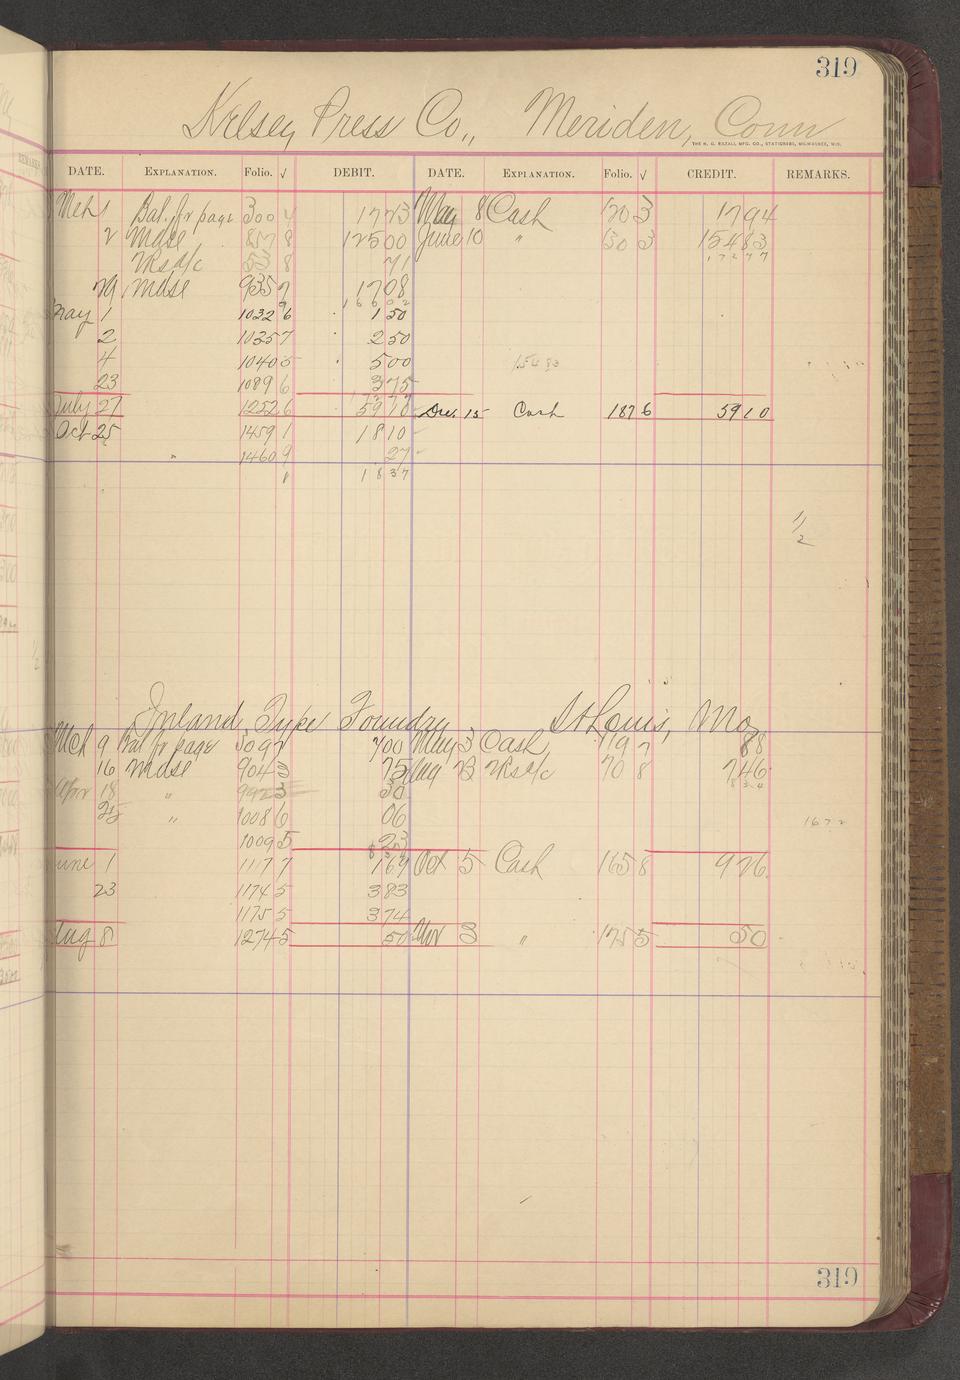 319
Kelsey Press Co., Meriden, Conn
THE H. G. RAZALL MFG. CO., STATIONERS, MILWAUKEE, WIS.
DATE. EXPLANATION. Folio. √ DEBIT. DATE. EXPLANATION. Folio. √ CREDIT. REMARKS.
Mch 1 Bal. fr page 300 4 17 73 May 8 Cash 120 3 17 94
2 Mdse 857 8 125 00 June 10 " 130 3 154 83
53 8 71 172 77
29 Mdse 935 7 17 08
166 02
May 1 1032 6 1 50
2 1035 7 2 50
4 1040 5 5 00 154 83
23 1089 6 3 75
July 27 1252 6 59 10 Dec 15 Cash 187 6 59 10
Oct 25 1459 1 18 10
" 1460 9 27
18 37
1/2
Inland Type Foundry St Louis, Mo
Mch 9 Bal fr page 309 7 7 00 May 3 Cash 119 7 88
16 Mdse 904 3 75 Aug 23 70 8 7 46
8 34
Apr 18 " 992 3 30
25 " 1008 6 06 16 72
1009 5 23
June 1 1117 7 1 69 Oct 5 Cash 165 8 9 26
23 1174 5 3 83
1175 5 3 74
Aug 8 1274 5 50 Nov 3 " 175 5 50
319